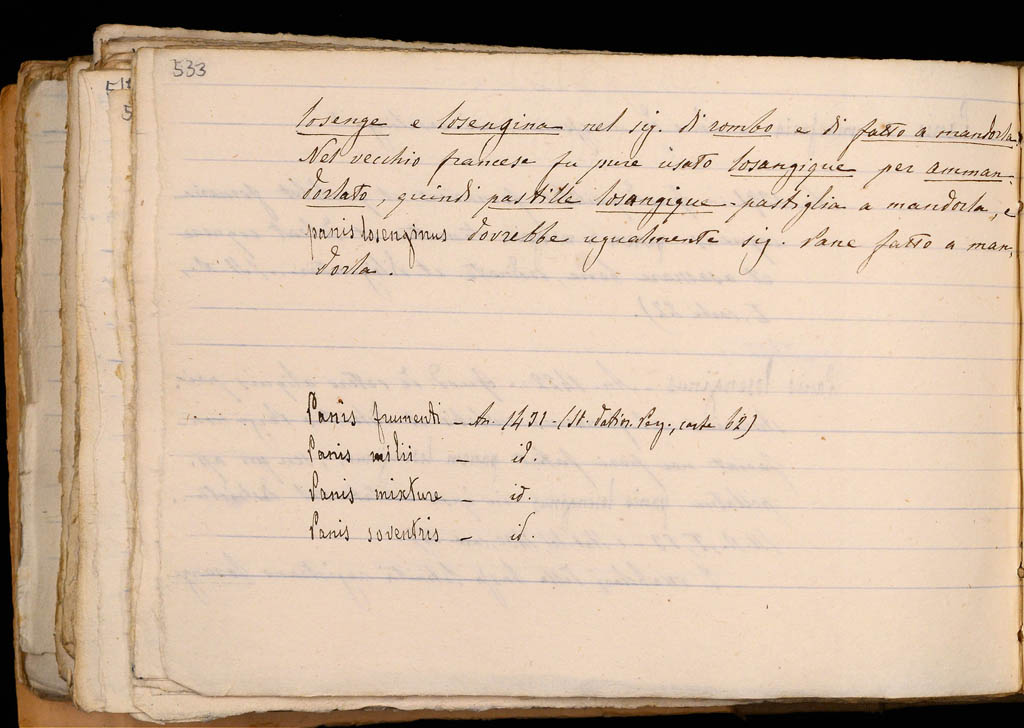 533
losenge e losengina nel sig. di rombo e di fatto a mandorla.
Nel vecchio francese fu pure usato losangique per amman-
dorlato, quindi pastille losangique - pastiglia a mandorla, e
panis losenginus dovrebbe ugualmente sig. Pane fatto a man-
dorla.
Panis frumenti - An. 1431 - (St. datior. Reg., carte 62)
Panis milii - id.
Panis mixture - id.
Panis soventris - id.